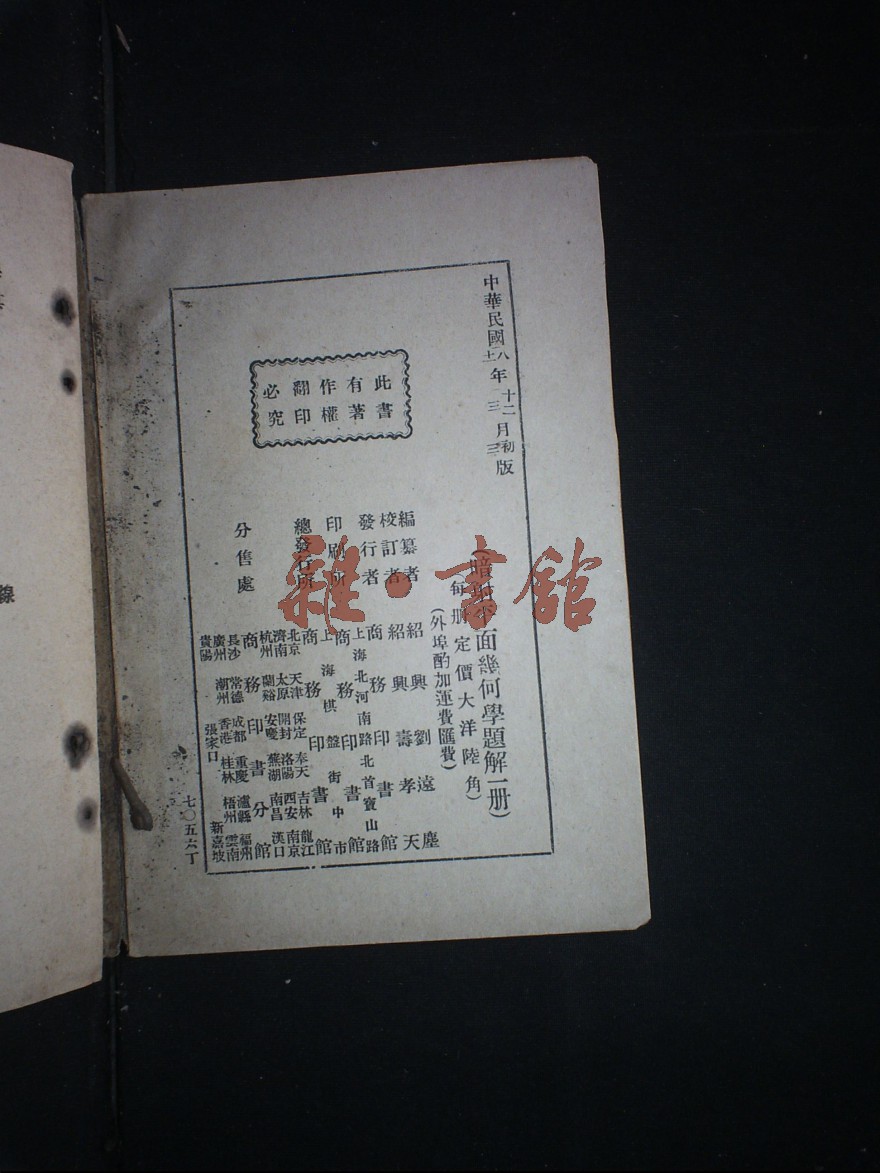 中華民國八年十二月初版
十二年三月三版
(暗射平面幾何學題解一册)
(每册定價大洋陸角)
(外埠酌加運費匯費)
編纂者 紹興劉遠塵
校訂者 紹興壽孝天
發行者 商務印書館
印刷所 上海北河南路北首寶山路
商務印書館
總發行所 上海棋盤街中市
商務印書館
分售處 北京 天津 保定 奉天 吉林 龍江
濟南 太原 開封 洛陽 西安 南京
杭州 蘭谿 安慶 蕪湖 南昌 漢口
商務印書分館
長沙 常德 成都 重慶 瀘縣 福州
廣州 潮州 香港 桂林 梧州 雲南
貴陽 張家口 新嘉坡
此書有著作權翻印必究
七〇五六丁
雜·書館
線